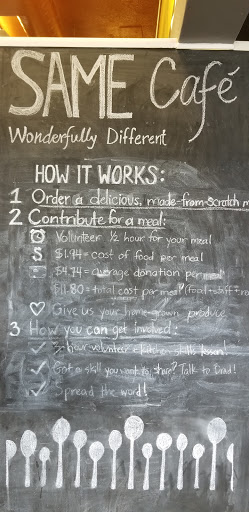 SAME Café
Wonderfully Different
HOW IT WORKS:
1 Order a delicious, made-from-scratch m
2 Contribute for a meal:
Volunteer ½ hour for your meal
$ $1.94 = cost of food per meal
$4.74 = average donation per meal
$11.80 = total cost per meal (food + staff +
Give us your home-grown produce
3 How you can get involved:
hour volunteer skills
Got a skill you want to share? Talk to
Spread the word!